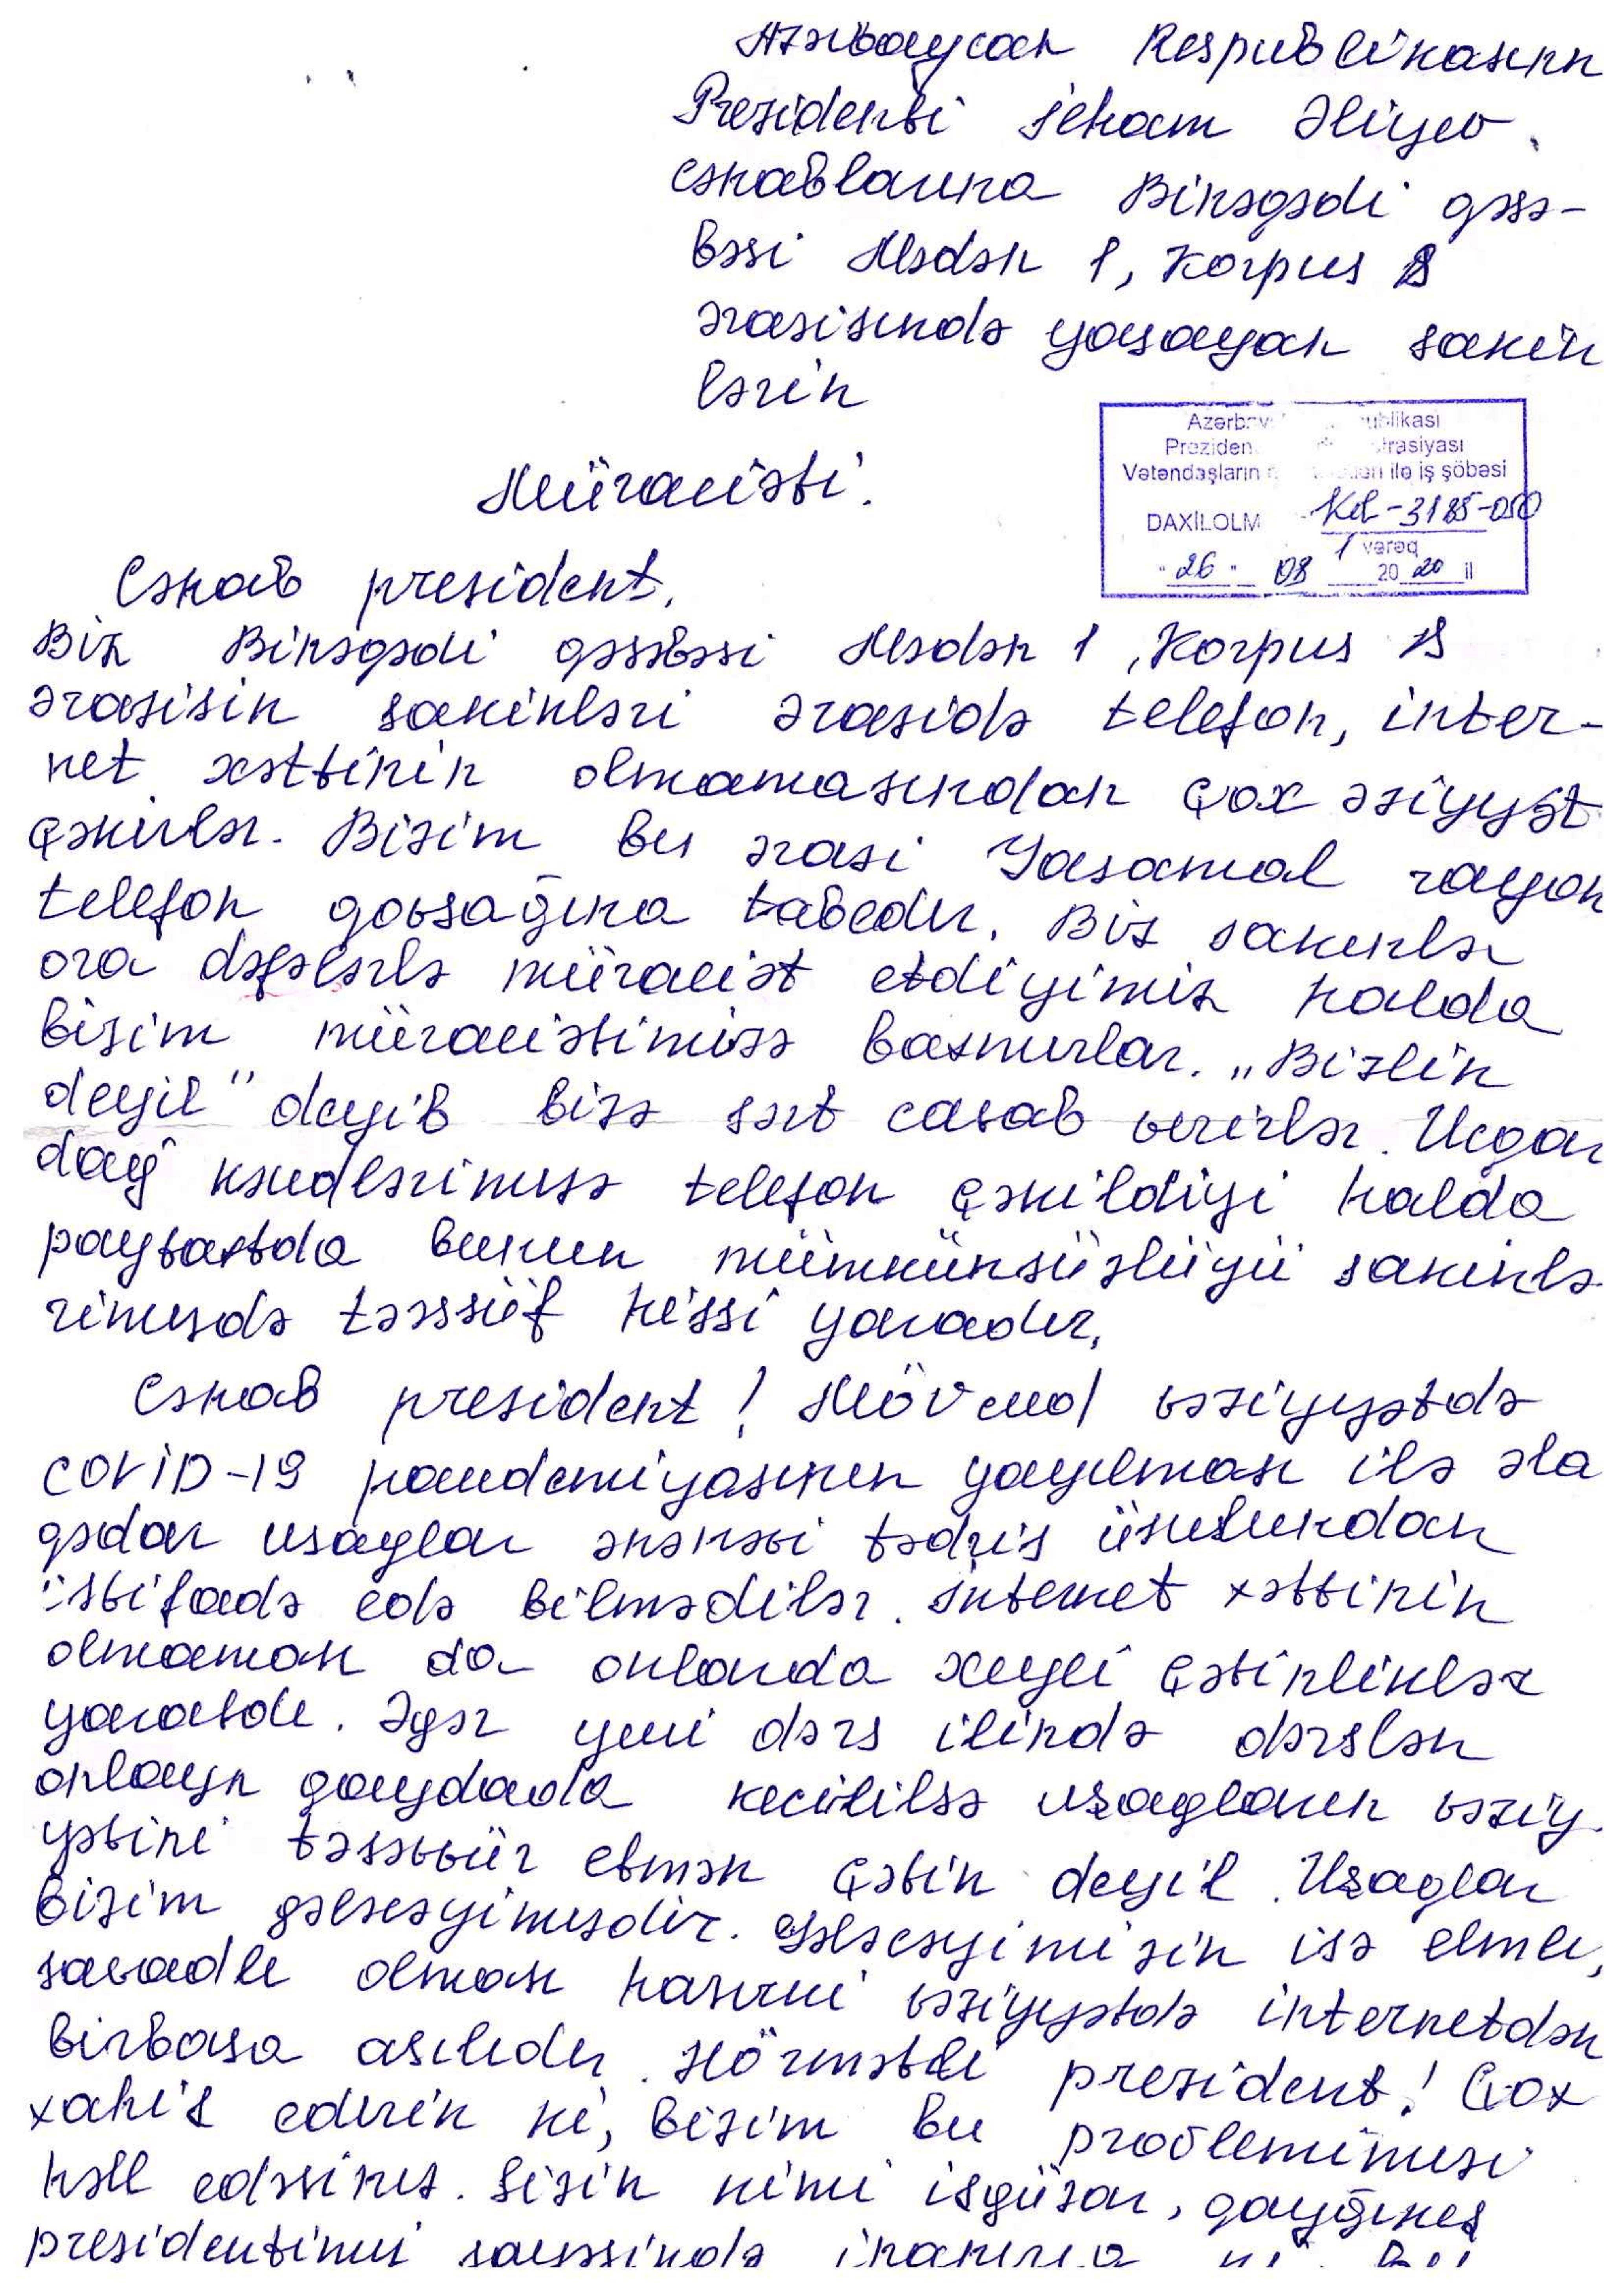 Azərbaycan Respublikasının
Prezidenti İlham Əliyev
cənablarına Binəqədi qəsə-
bəsi Mədən 1, Korpus 18
ərazisində yaşayan sakin
lərin
Azərbay publikası
Preziden trasiyası
Vətəndaşların ilə iş şöbəsi
DAXİLOLM Kol-3185-050
1 vərəq
"26" 08 2020 il
Müraciəti.
Cənab prezident.
Biz Binəqədi qəsəbəsi Mədən 1, Korpus 18
ərazisin sakinləri ərazidə telefon, inter-
net xəttinin olmamasından çox əziyyət
çəkirlər. Bizim bu ərazi Yasamal rayon
telefon qovşağına tabedir. Biz sakinlər
ora dəfələrlə müraciət etdiyimiz halda
bizim müraciətimizə baxmırlar. „Bizlik
deyil" deyib bizə sərt cavab verirlər. Ucqar
dağ kəndlərimizə telefon çəkildiyi halda
paytaxtda bunun mümkünsüzlüyü sakinlə
rimizdə təəssüf hissi yaradır,
Cənab prezident! Mövcud vəziyyətdə
COVİD-19 pandemiyasının yayılması ilə əla
qədar uşaqlar ənənəvi tədris üsulundan
istifadə edə bilmədilər. İnternet xəttinin
olmaması da onlarda xeyli çətinliklər
yaratdı. Əgər yeni dərs ilində dərslər
onlayn qaydada keçirilsə uşaqların vəziy-
yətini təsəvvür etmək çətin deyil. Uşaqlar
bizim gələcəyimizdir. Gələcəyimizin isə elmli,
savadlı olması hazırki vəziyyətdə internetdən
birbaşa asılıdır. Hörmətli prezident! Çox
xahiş edirik ki, bizim bu problemimizi
həll edəsiniz. Sizin kimi işgüzar, qayğıkeş
prezidentimiz sayəsində inanırıq ki,